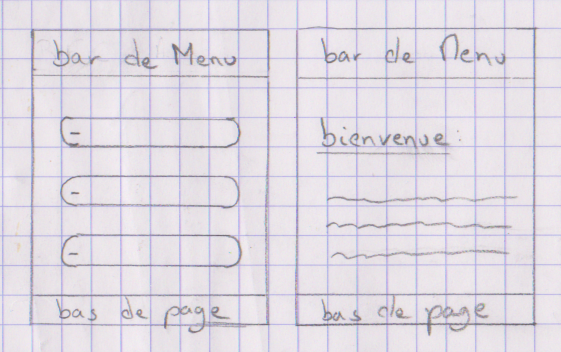 bar de Menu
=
-
-
bas de page
bar de Menu
bienvenue:
bas de page